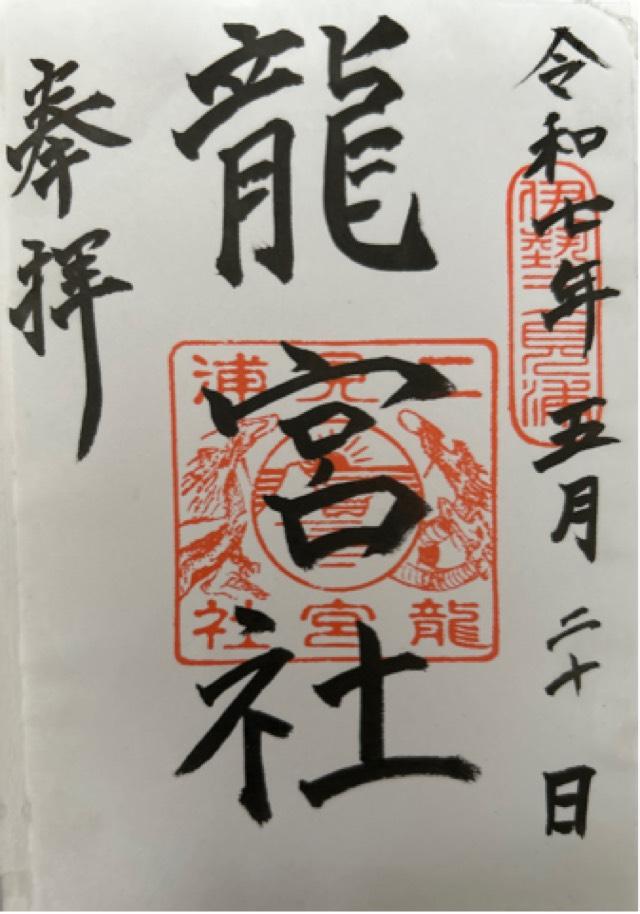 令和七年五月二十日
伊勢二見浦
龍宮社
二見浦
龍宮社
奉拝